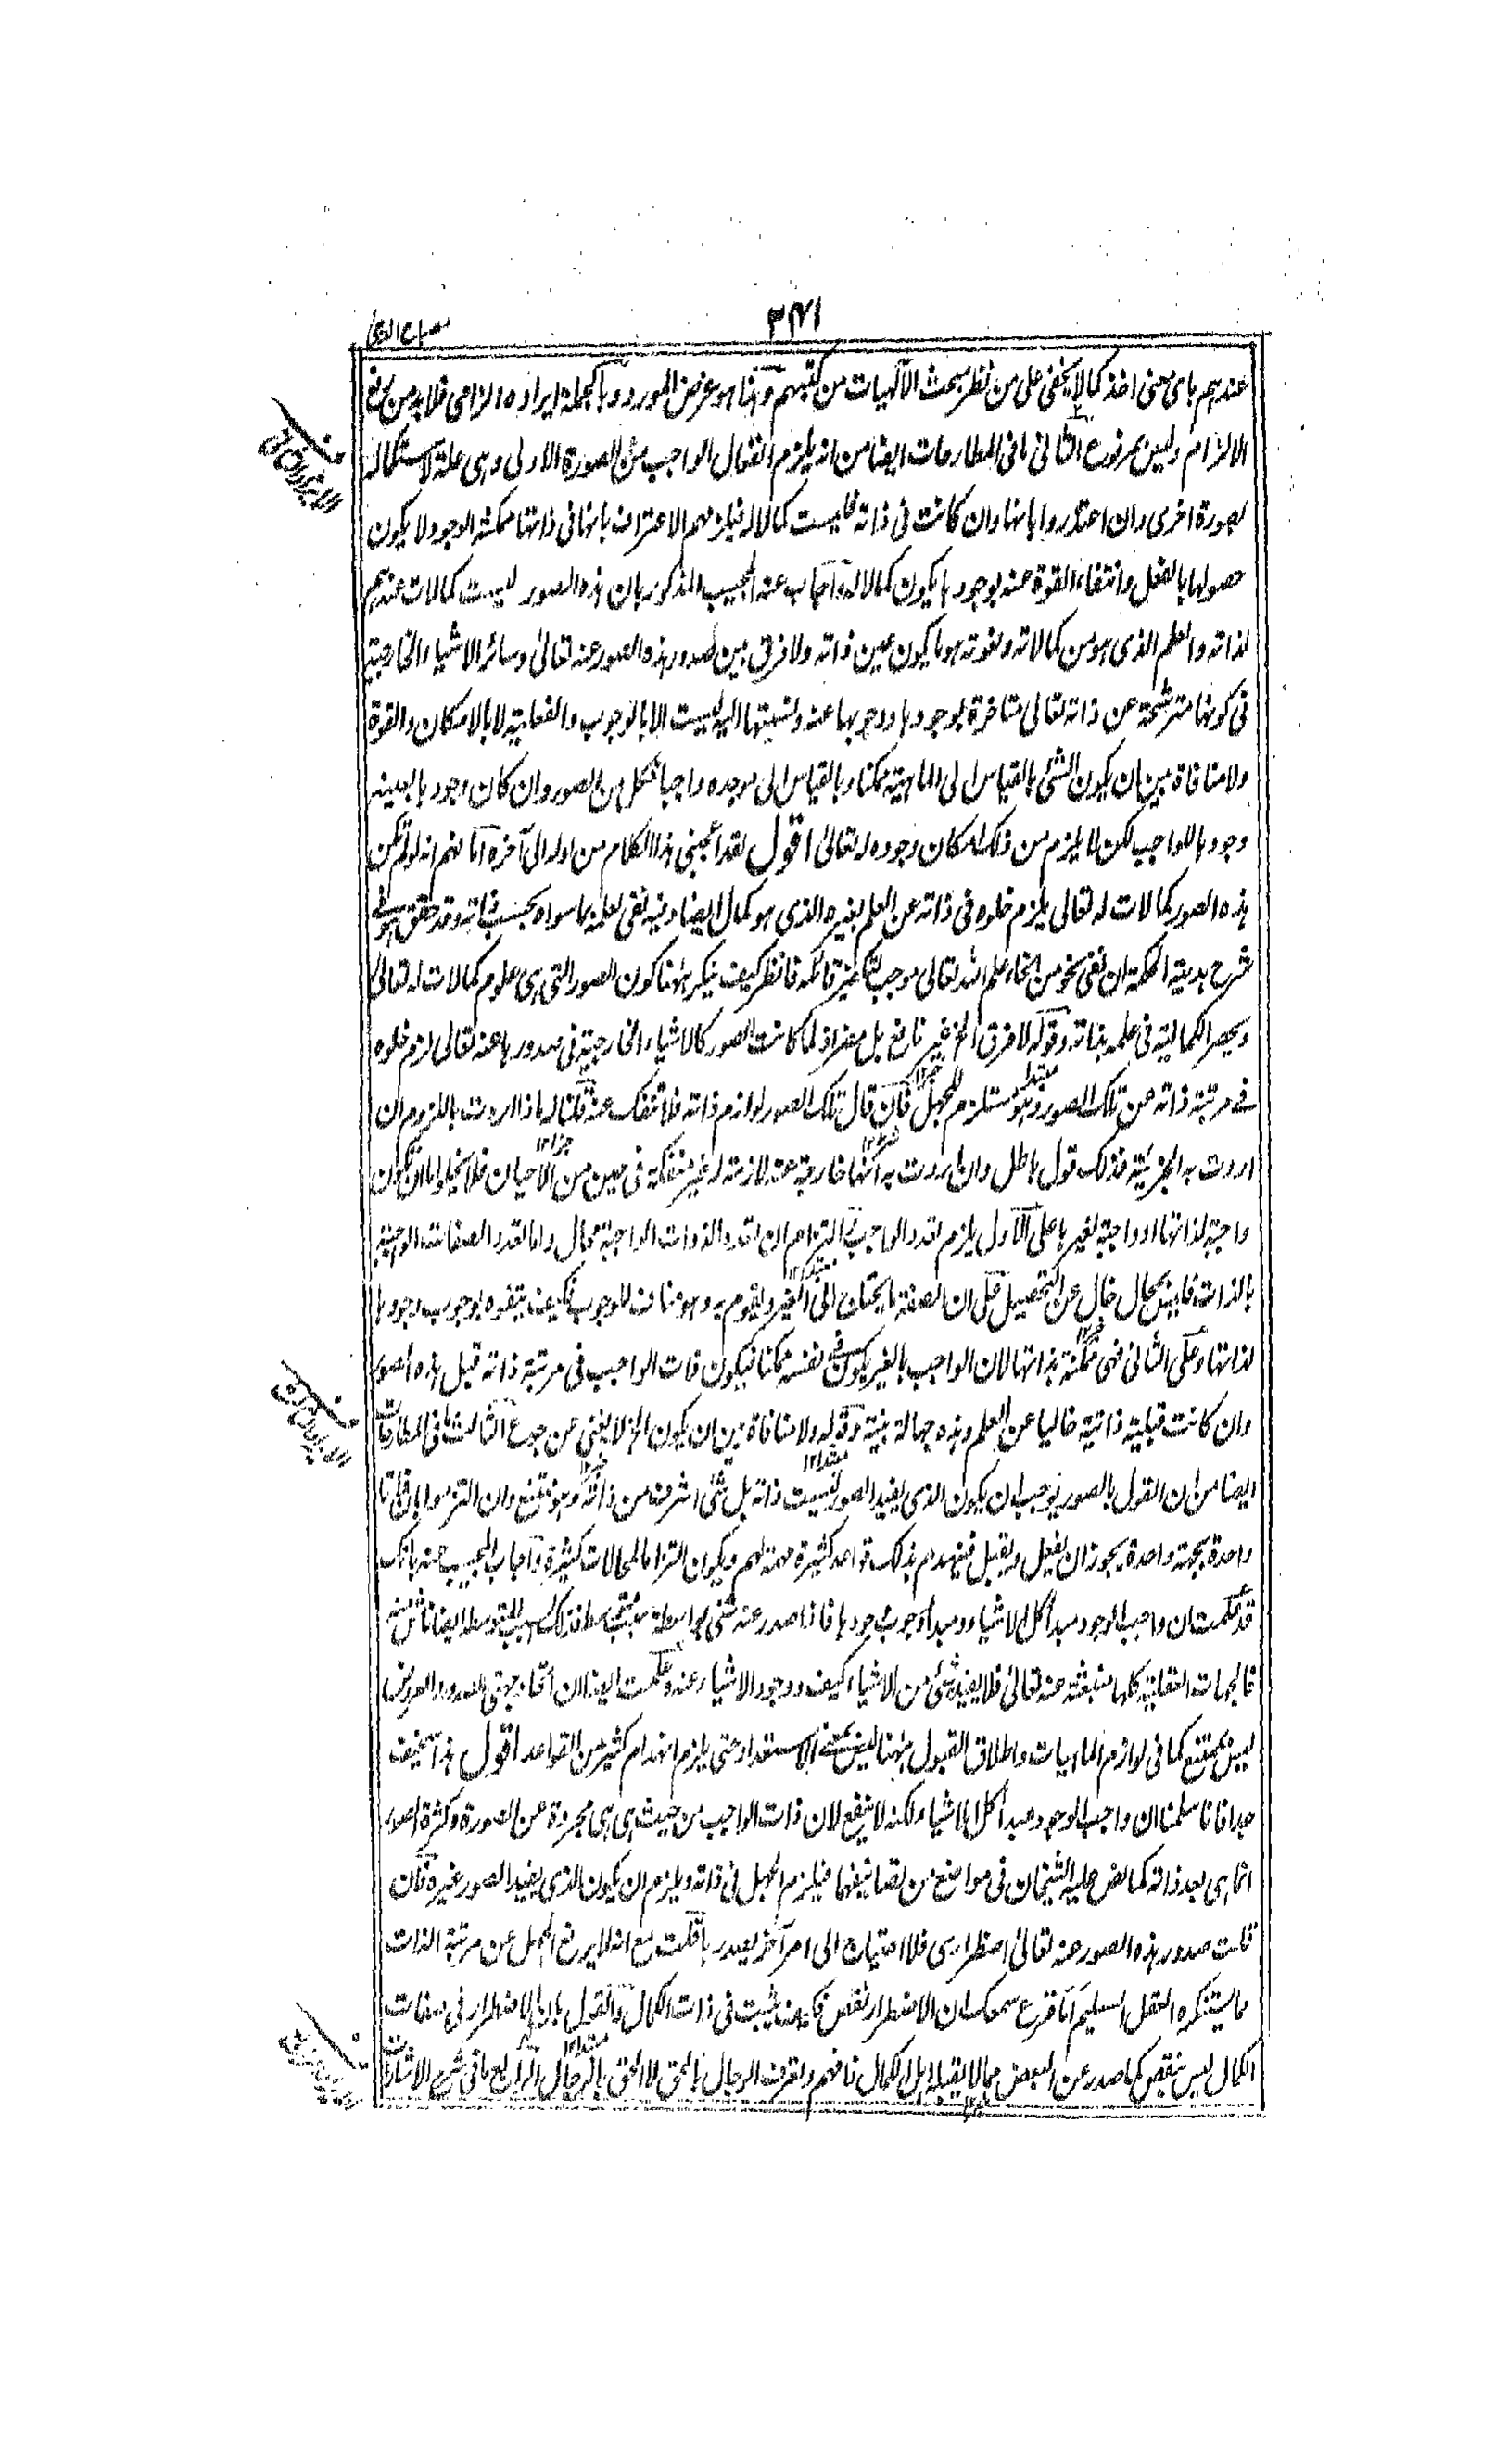 ٣٤١
عندهم باى معنى اخذ كما لا يخفى على من نظر مبحث الآلهيات من كتبهم وهذا هو غرض المورد وبالجملة ايراده الزامى فلا بد من رفع
الالزام وليس بمرفوع الثانى ما فى المطارحات ايضا من انه يلزم انفعال الواجب من الصورة الاولى وهى علة لاستكماله
بصورة اخرى وان اعتذروا بانها وان كانت فى ذاته فليست كمالا له فيلزمهم الاعتراف بانها فى ذاتها ممكنة الوجود لا يكون
حصولها بالفعل وانتفاء القوة عنه بوجودها يكون كمالا له واجاب عنه المجيب المذكور بان هذه الصور ليست كمالات عندهم
لذاته والعلم الذى هو من كمالاته ونعوته هو ما يكون عين ذاته ولا فرق بين صدور هذه الصور عنه تعالى وسائر الاشياء الخارجية
فى كونها مترشحة عن ذاته تعالى متاخرة بوجودها ووجوبها عنه ونسبتها اليه ليست الا بالوجوب والفعلية لا بالامكان والقوة
ولا منافاة بين ان يكون الشئ بالقياس الى الماهية ممكنا وبالقياس الى موجده واجبا فكل من الصور وان كان وجودها بعينه
وجودها للواجب لكن لا يلزم من ذلك امكان وجوده له تعالى اقول لقد اعجبنى هذا الكلام من اوله الى آخره اما فهم انه لو لم تكن
هذه الصور كمالات له تعالى يلزم خلوه فى ذاته عن العلم بغيره الذى هو كمال ايضا وفيه نفى لعلمه بما سواه بحسب ذاته وقد حقق هو فى
شرح هداية الحكمة ان نفى نحو من انحاء علم الله تعالى موجب لتكفير قائله فانظر كيف ينكر ههنا كون الصور التى هى علوم كمالات له تعالى
ويحصر الكمالية فى علمه بذاته وقوله لا فرق الخ غير نافع بل مضر اذ لما كانت الصور كالاشياء الخارجية فى صدورها عنه تعالى لزم خلوه
فى مرتبة ذاته عن تلك الصور وهو مستلزم للجهل فان قال تلك الصور لوازم ذاته فلا تنفك عنه قلنا له ماذا اردت باللزوم ان
اردت به الجزئية فذلك قول باطل وان اردت به انها خارجة عنه لازمة له غير منفكة فى حين من الاحيان فلا يخلو اما ان تكون
واجبة لذاتها او واجبة لغيرها على الاول يلزم تعدد الواجب التزام ان تعدد الذوات الواجبة محال واما تعدد الصفات الواجبة
بالذات فليس بمحال خال عن التحصيل فان الصفة ما يحتاج الى الغير ويقوم به وهو مناف للوجوب فكيف يتفوه بوجوب وجودها
لذاتها وعلى الثانى فهى ممكنة بذاتها لان الواجب بالغير يكون فى نفسه ممكنا فيكون ذات الواجب فى مرتبة ذاته قبل هذه الصور
وان كانت قبلية ذاتية خاليا عن العلم وهذه جهالة بينة وقوله ولا منافاة بين ان يكون الخ لا يغنى عن جوع الثالث ما فى المطارحات
ايضا من ان القول بالصور يوجب ان يكون الذى يفيد الصور ليست ذاته بل شئ اشرف من ذاته وهو ممتنع وان التزموا بان ذاتا
واحدة بجهة واحدة يجوز ان يفعل ويقبل فينهدم بذلك قواعد كثيرة مهمة لهم ويكون التزاما لمحالات كثيرة واجاب المجيب عنه بانك
قد علمت ان واجب الوجود مبدأ كل الاشياء ومبدأ وجوب وجودها فاذا صدر عنه شئ بواسطة فذلك السبب المتوسط ايضا ناش منه
فالجهات العقلية كلها منبعثة عنه تعالى فلا يفيده شئ من الاشياء كيف ووجود الاشياء عنه وعلمت ايضا ان اتحاد جهتى الصدور والعروض
ليس بممتنع كما فى لوازم الماهيات واطلاق القبول ههنا ليس بمعنى الاستعداد حتى يلزم انهدام كثير من القواعد اقول هذا سخيف
جدا فانا سلمنا ان واجب الوجود مبدأ كل الاشياء لكنه لا ينفع لان ذات الواجب من حيث هى هى مجردة عن الصورة وكثرة الصور
انما هى بعد ذاته كما نص عليه الشيخان فى مواضع من تصانيفهما فيلزم الجهل فى ذاته ويلزم ان يكون الذى يفيد الصور غيره فان
قلت صدور هذه الصور عنه تعالى اضطرارى فلا احتياج الى امر آخر يصدرها قلت مع انه لا يرفع الجهل عن مرتبة الذات
مما يستنكره العقل السليم اما قرع سمعك ان الاضطرار نقص فكيف يثبت فى ذات الكمال والقول بان الاضطرار فى صفات
الكمال ليس بنقص كما صدر عن البعض مما لا يقبله اهل الكمال فافهم وتعرف الرجال بالحق لا الحق بالرجال الرابع ما فى شرح الاشارات